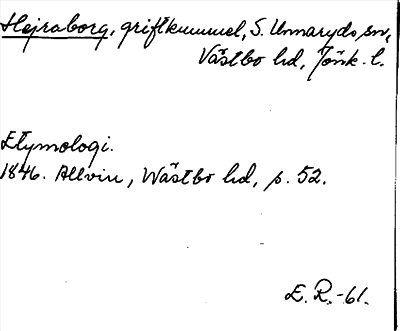 Hejraborg, griftkummel, S. Unnaryds sn,
Västbo hd, Jönk. l.
Etymologi.
1846. Allvin, Wästbo hd, p. 52.
E. R. -61.